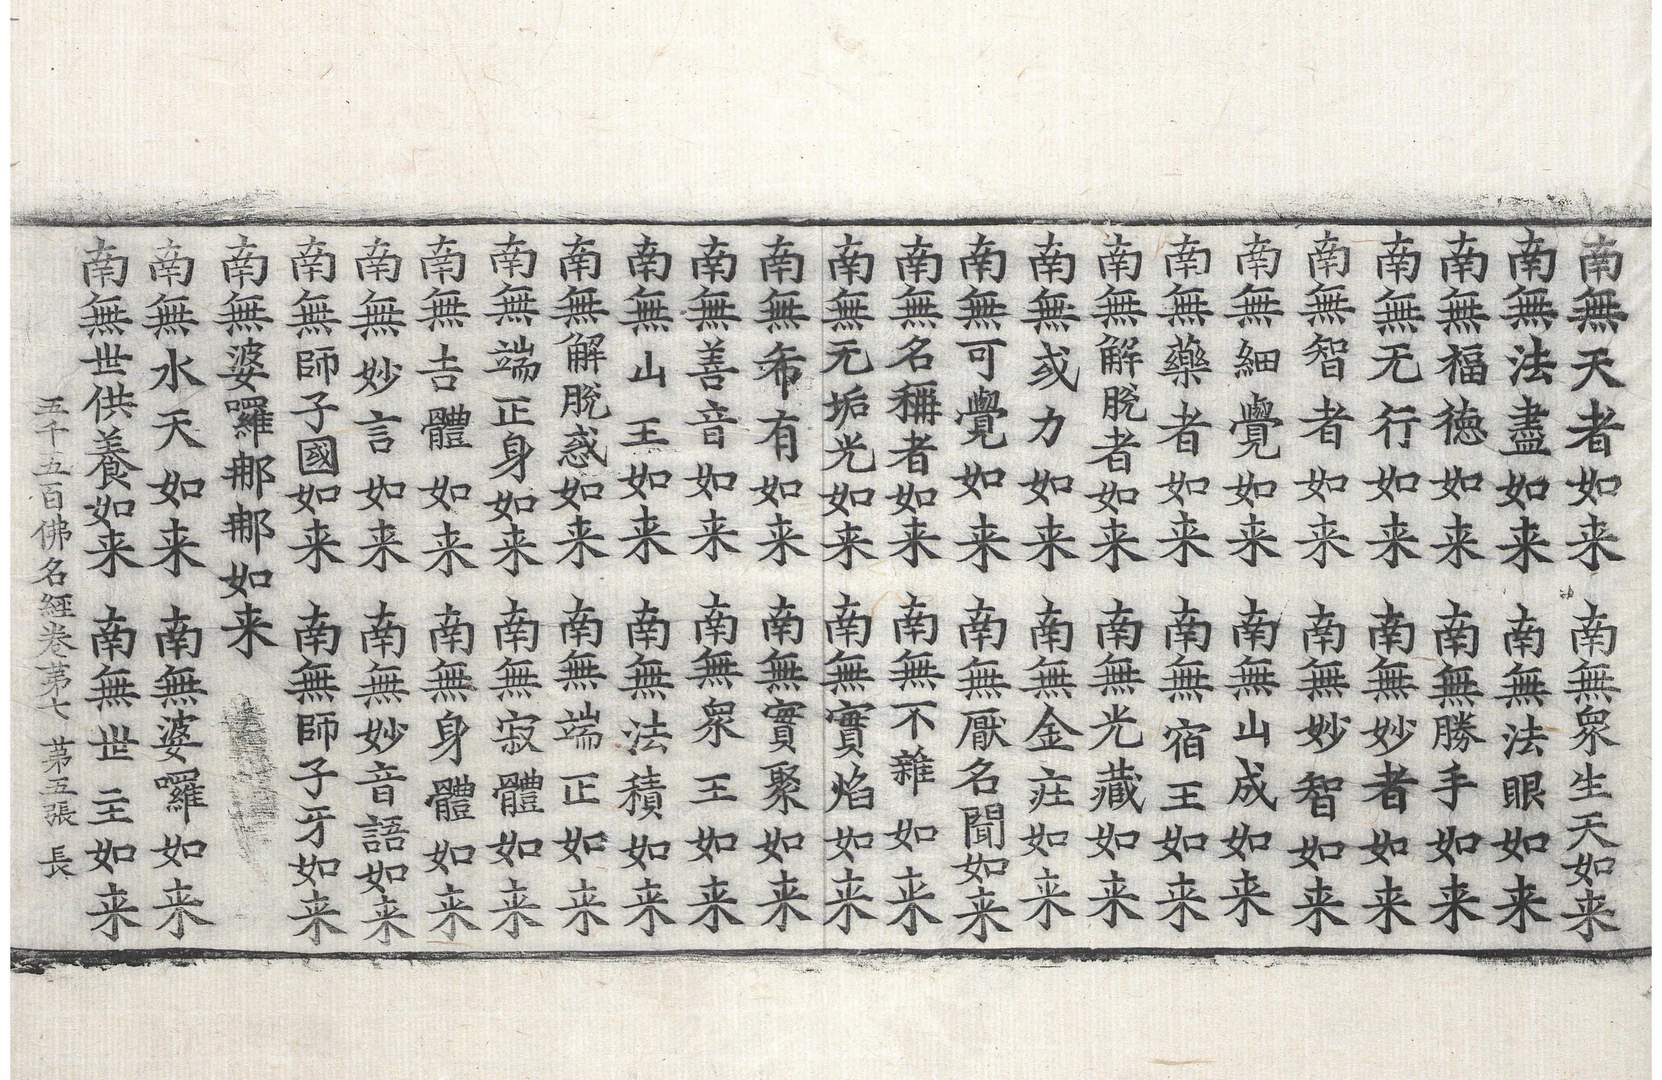 南無天者如来　南無衆生天如来
南無法盡如来　南無法眼如来
南無福徳如来　南無勝手如来
南無无行如来　南無妙者如来
南無智者如来　南無妙智如来
南無細覺如来　南無山成如来
南無藥者如来　南無宿王如来
南無解脫者如来　南無光藏如来
南無或力如来　南無金庄如来
南無可覺如来　南無厭名聞如来
南無名稱者如来　南無不雜如来
南無无垢光如来　南無寶焰如来
南無希有如来　南無實聚如来
南無善音如来　南無衆王如来
南無山王如来　南無法積如来
南無解脫惑如来　南無端正如来
南無端正身如来　南無寂體如来
南無吉體如来　南無身體如来
南無妙言如来　南無妙音語如来
南無師子國如来　南無師子牙如来
南無婆囉那那如来
南無水天如来　南無婆囉如来
南無世供養如来　南無世主如来
五千五百佛名經卷第七　第五張　長